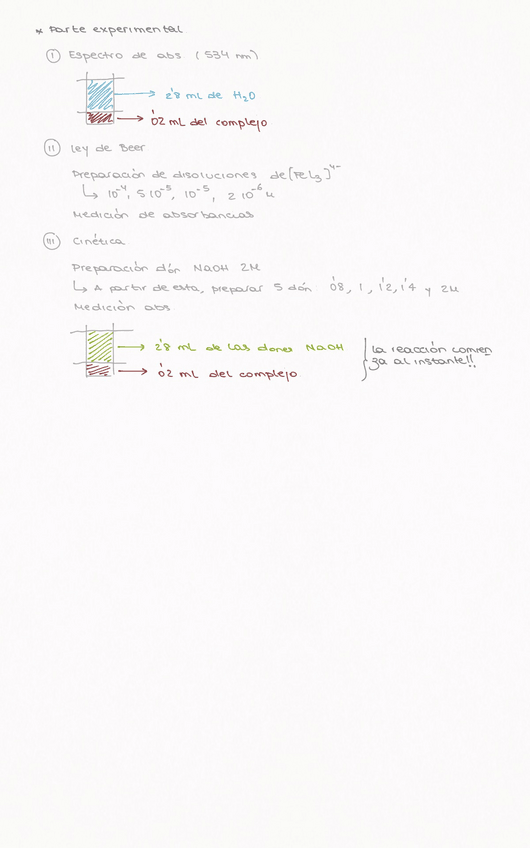 * Parte experimental
I Espectro de abs (534 nm)
2'8 mL de H₂O
0'2 mL del complejo
II Ley de Beer
Preparación de disoluciones de [FeL₃]⁴⁻
↳ 10⁻⁴, 5 10⁻⁵, 10⁻⁵, 2 10⁻⁶ M
Medición de absorbancias
III Cinética
Preparación dión NaOH 2M
↳ A partir de esta, preparar 5 dión 0'8, 1, 1'2, 1'4 y 2M
Medición abs
2'8 mL de las diones NaOH
0'2 mL del complejo
La reacción comien
za al instante!!